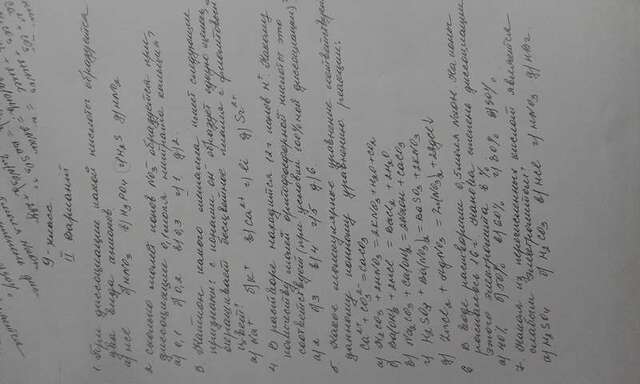 9-класс.
II Вариант
1. При диссоциации какой кислоты образуется
два вида анионов
а) HCl б) HNO3 в) H3PO4 г) H2S д) HNO2
2. Сколько молей ионов NO3⁻ образуется при
диссоциации 0,1 моля нитрата кальция?
а) 0,1 б) 0,2 в) 0,3 г) 1 д) 2
3. Катион какого металла имеет следующие
признаки: с ионами OH⁻ образует едкую щелочь,
окрашивает бесцветное пламя в фиолетовый
цвет?
а) Na⁺ б) K⁺ в) Ca²⁺ г) Li д) Sr²⁺
4. В растворе находится 12 г ионов H⁺. Какому
количеству молей ортофосфорной кислоты это
соответствует (при условии 100% ной диссоциации)?
а) 2 б) 3 в) 4 г) 5 д) 6
5. Какое молекулярное уравнение соответствует
данному ионному уравнению реакции:
Ca²⁺ + CO3²⁻ = CaCO3
а) K2CO3 + 2HNO3 = 2KNO3 + H2O + CO2
б) Ba(OH)2 + 2HCl = BaCl2 + 2H2O
в) Na2CO3 + Ca(OH)2 = 2NaOH + CaCO3
г) H2SO4 + Ba(NO3)2 = BaSO4 + 2HNO3
д) ZnCl2 + AgNO3 = Zn(NO3)2 + 2AgCl↓
6. В воде растворили 0,5 моля NaOH. На ионы
распалось 16 г. Какова степень диссоциации
этого электролита в %.
а) 40% б) 50% в) 60% г) 80% д) 90%
7. Какая из перечисленных кислот является
слабым электролитом?
а) H2SO4 б) H2CO3 в) HCl г) HNO3 д) HBr